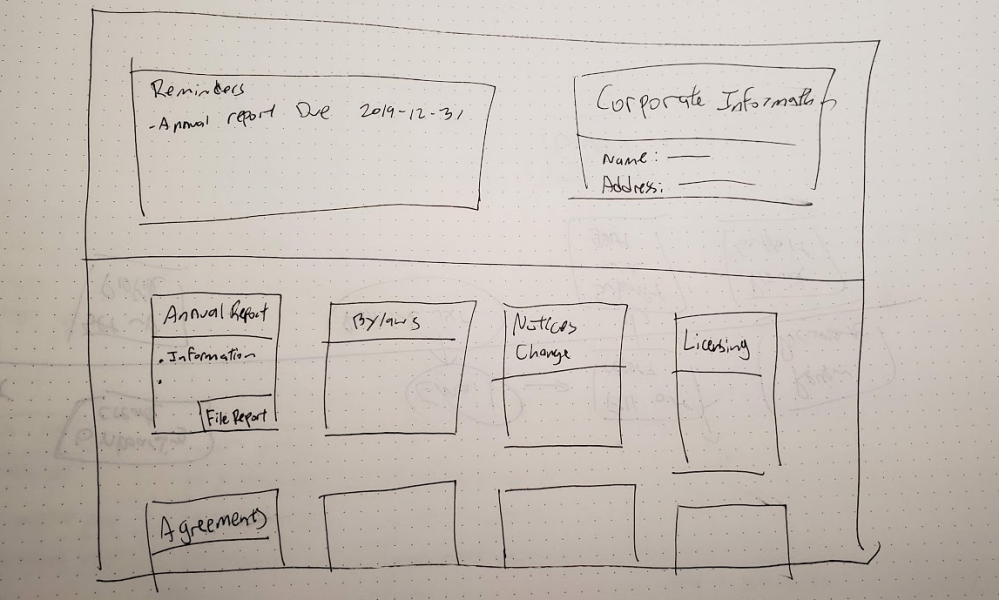 Reminders
-Annual report Due 2019-12-31
Corporate Information
Name:
Address:
Annual Report
. Information
.
File Report
Bylaws
Notices
Change
Licensing
Agreements